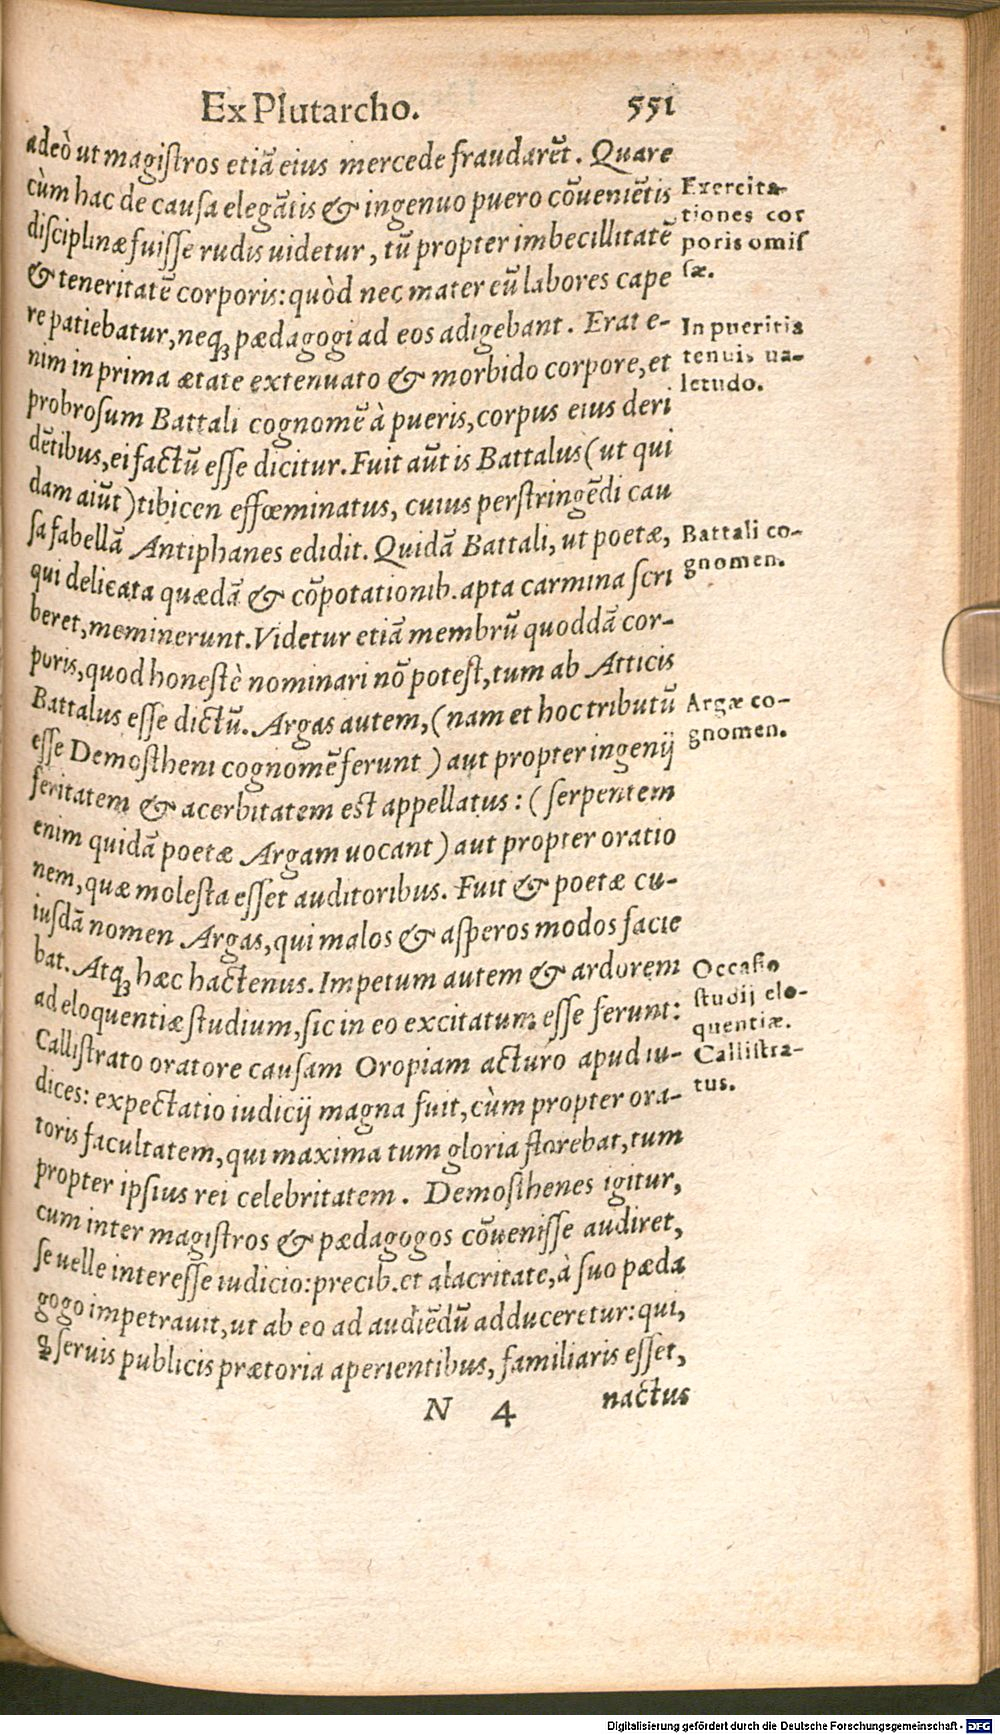 Ex Plutarcho. 551
adeò ut magistros etiā eius mercede fraudarēt. Quare
cùm hac de causa elegātis & ingenuo puero cōueniētis
disciplinæ fuisse rudis uidetur, tū propter imbecillitatē
& teneritatē corporis: quòd nec mater eū labores cape
re patiebatur, neq; pædagogi ad eos adigebant. Erat e-
nim in prima ætate extenuato & morbido corpore, et
probrosum Battali cognomē à pueris, corpus eius deri
dētibus, ei factū esse dicitur. Fuit aūt is Battalus (ut qui
dam aiūt) tibicen effœminatus, cuius perstringēdi cau
sa fabellā Antiphanes edidit. Quidā Battali, ut poetæ,
qui delicata quædā & cōpotationib. apta carmina scri
beret, meminerunt. Videtur etiā membrū quoddā cor-
poris, quod honestè nominari nō potest, tum ab Atticis
Battalus esse dictū. Argas autem, (nam et hoc tributū
esse Demostheni cognomē ferunt) aut propter ingenij
feritatem & acerbitatem est appellatus: (serpentem
enim quidā poetæ Argam uocant) aut propter oratio
nem, quæ molesta esset auditoribus. Fuit & poetæ cu-
iusdā nomen Argas, qui malos & asperos modos facie
bat. Atq; hæc hactenus. Impetum autem & ardorem
ad eloquentiæ studium, sic in eo excitatum esse ferunt:
Callistrato oratore causam Oropiam acturo apud iu-
dices: expectatio iudicij magna fuit, cùm propter ora-
toris facultatem, qui maxima tum gloria florebat, tum
propter ipsius rei celebritatem. Demosthenes igitur,
cum inter magistros & pædagogos cōuenisse audiret,
se uelle interesse iudicio: precib. et alacritate, à suo pæda
gogo impetrauit, ut ab eo ad audiēdū adduceretur: qui,
q̱ seruis publicis prætoria aperientibus, familiaris esset,
N 4 nactus
Exercita-
tiones cor
poris omis
sæ.
In pueritia
tenuis ua-
letudo.
Battali co-
gnomen.
Argæ co-
gnomen.
Occasio
studij elo-
quentiæ.
Callistra-
tus.
Digitalisierung gefördert durch die Deutsche Forschungsgemeinschaft - DFG